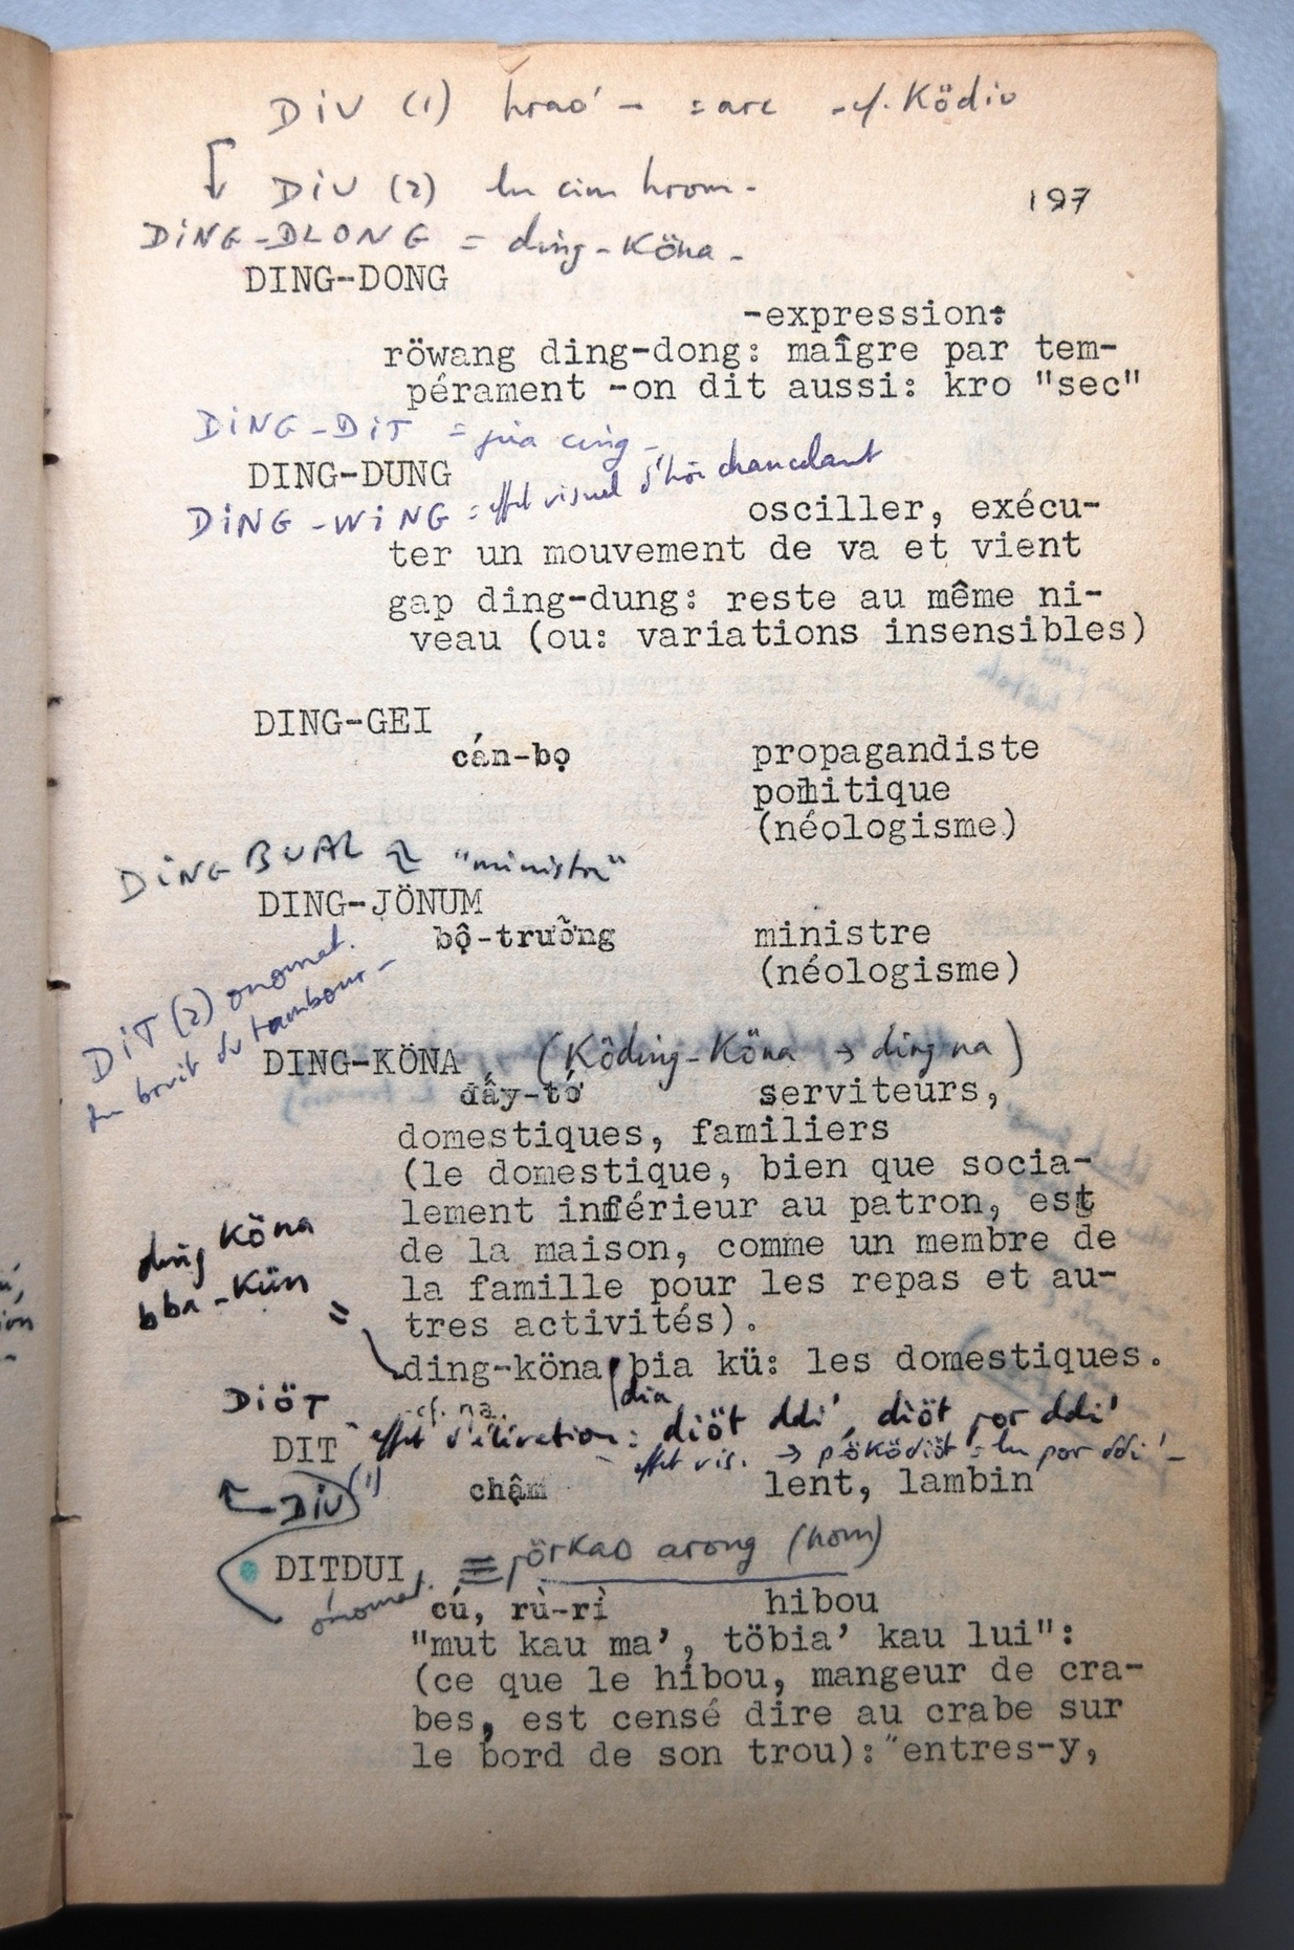 DiU (1) hrao' - = arc - cf. Ködiu
DiU (2) lu cim hrom -
197
DiNG-DLONG = ding-Köna -
DING-DONG
-expression:
röwang ding-dong: maîgre par tem-
pérament -on dit aussi: kro "sec"
DiNG-DiT = cing -
DING-DUNG
DiNG-WiNG = effet visuel d' chancelant
osciller, exécu-
ter un mouvement de va et vient
gap ding-dung: reste au même ni-
veau (ou: variations insensibles)
DING-GEI
cán-bọ propagandiste
politique
(néologisme)
DiNG BUAL "ministre"
DING-JÖNUM
bộ-trưỡng ministre
(néologisme)
DiT (2) onomat.
du bruit du tambour -
DING-KÖNA (Köding-Köna → dingna)
đấy-tớ serviteurs,
domestiques, familiers
(le domestique, bien que socia-
lement inférieur au patron, est
de la maison, comme un membre de
la famille pour les repas et au-
tres activités).
ding Köna
bba-Kün =
ding-köna bia kü: les domestiques.
dia
cf. na.
DiÖT - effet d'élévation: diöt ddi', diöt por ddi'
DIT - effet vis. → pöködiöt = lu por ddi' -
chậm lent, lambin
DiU (1)
DITDUI ≡ pörkao arong (hom)
onomat. cú, rù-rì hibou
"mut kau ma', töbia' kau lui":
(ce que le hibou, mangeur de cra-
bes, est censé dire au crabe sur
le bord de son trou): "entres-y,